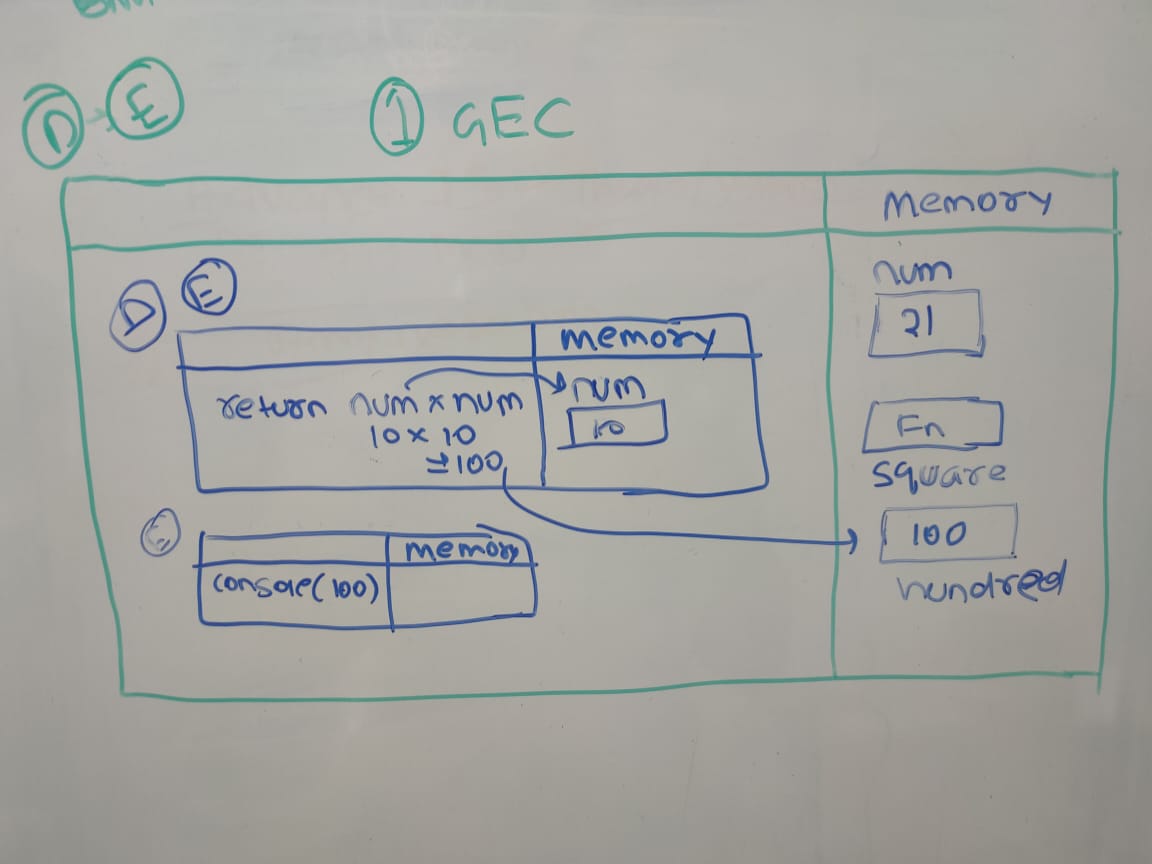 D E
① GEC
Memory
D E
memory
return num x num
10 x 10
= 100
num
10
E
memory
console(100)
num
21
Fn
square
100
hundred